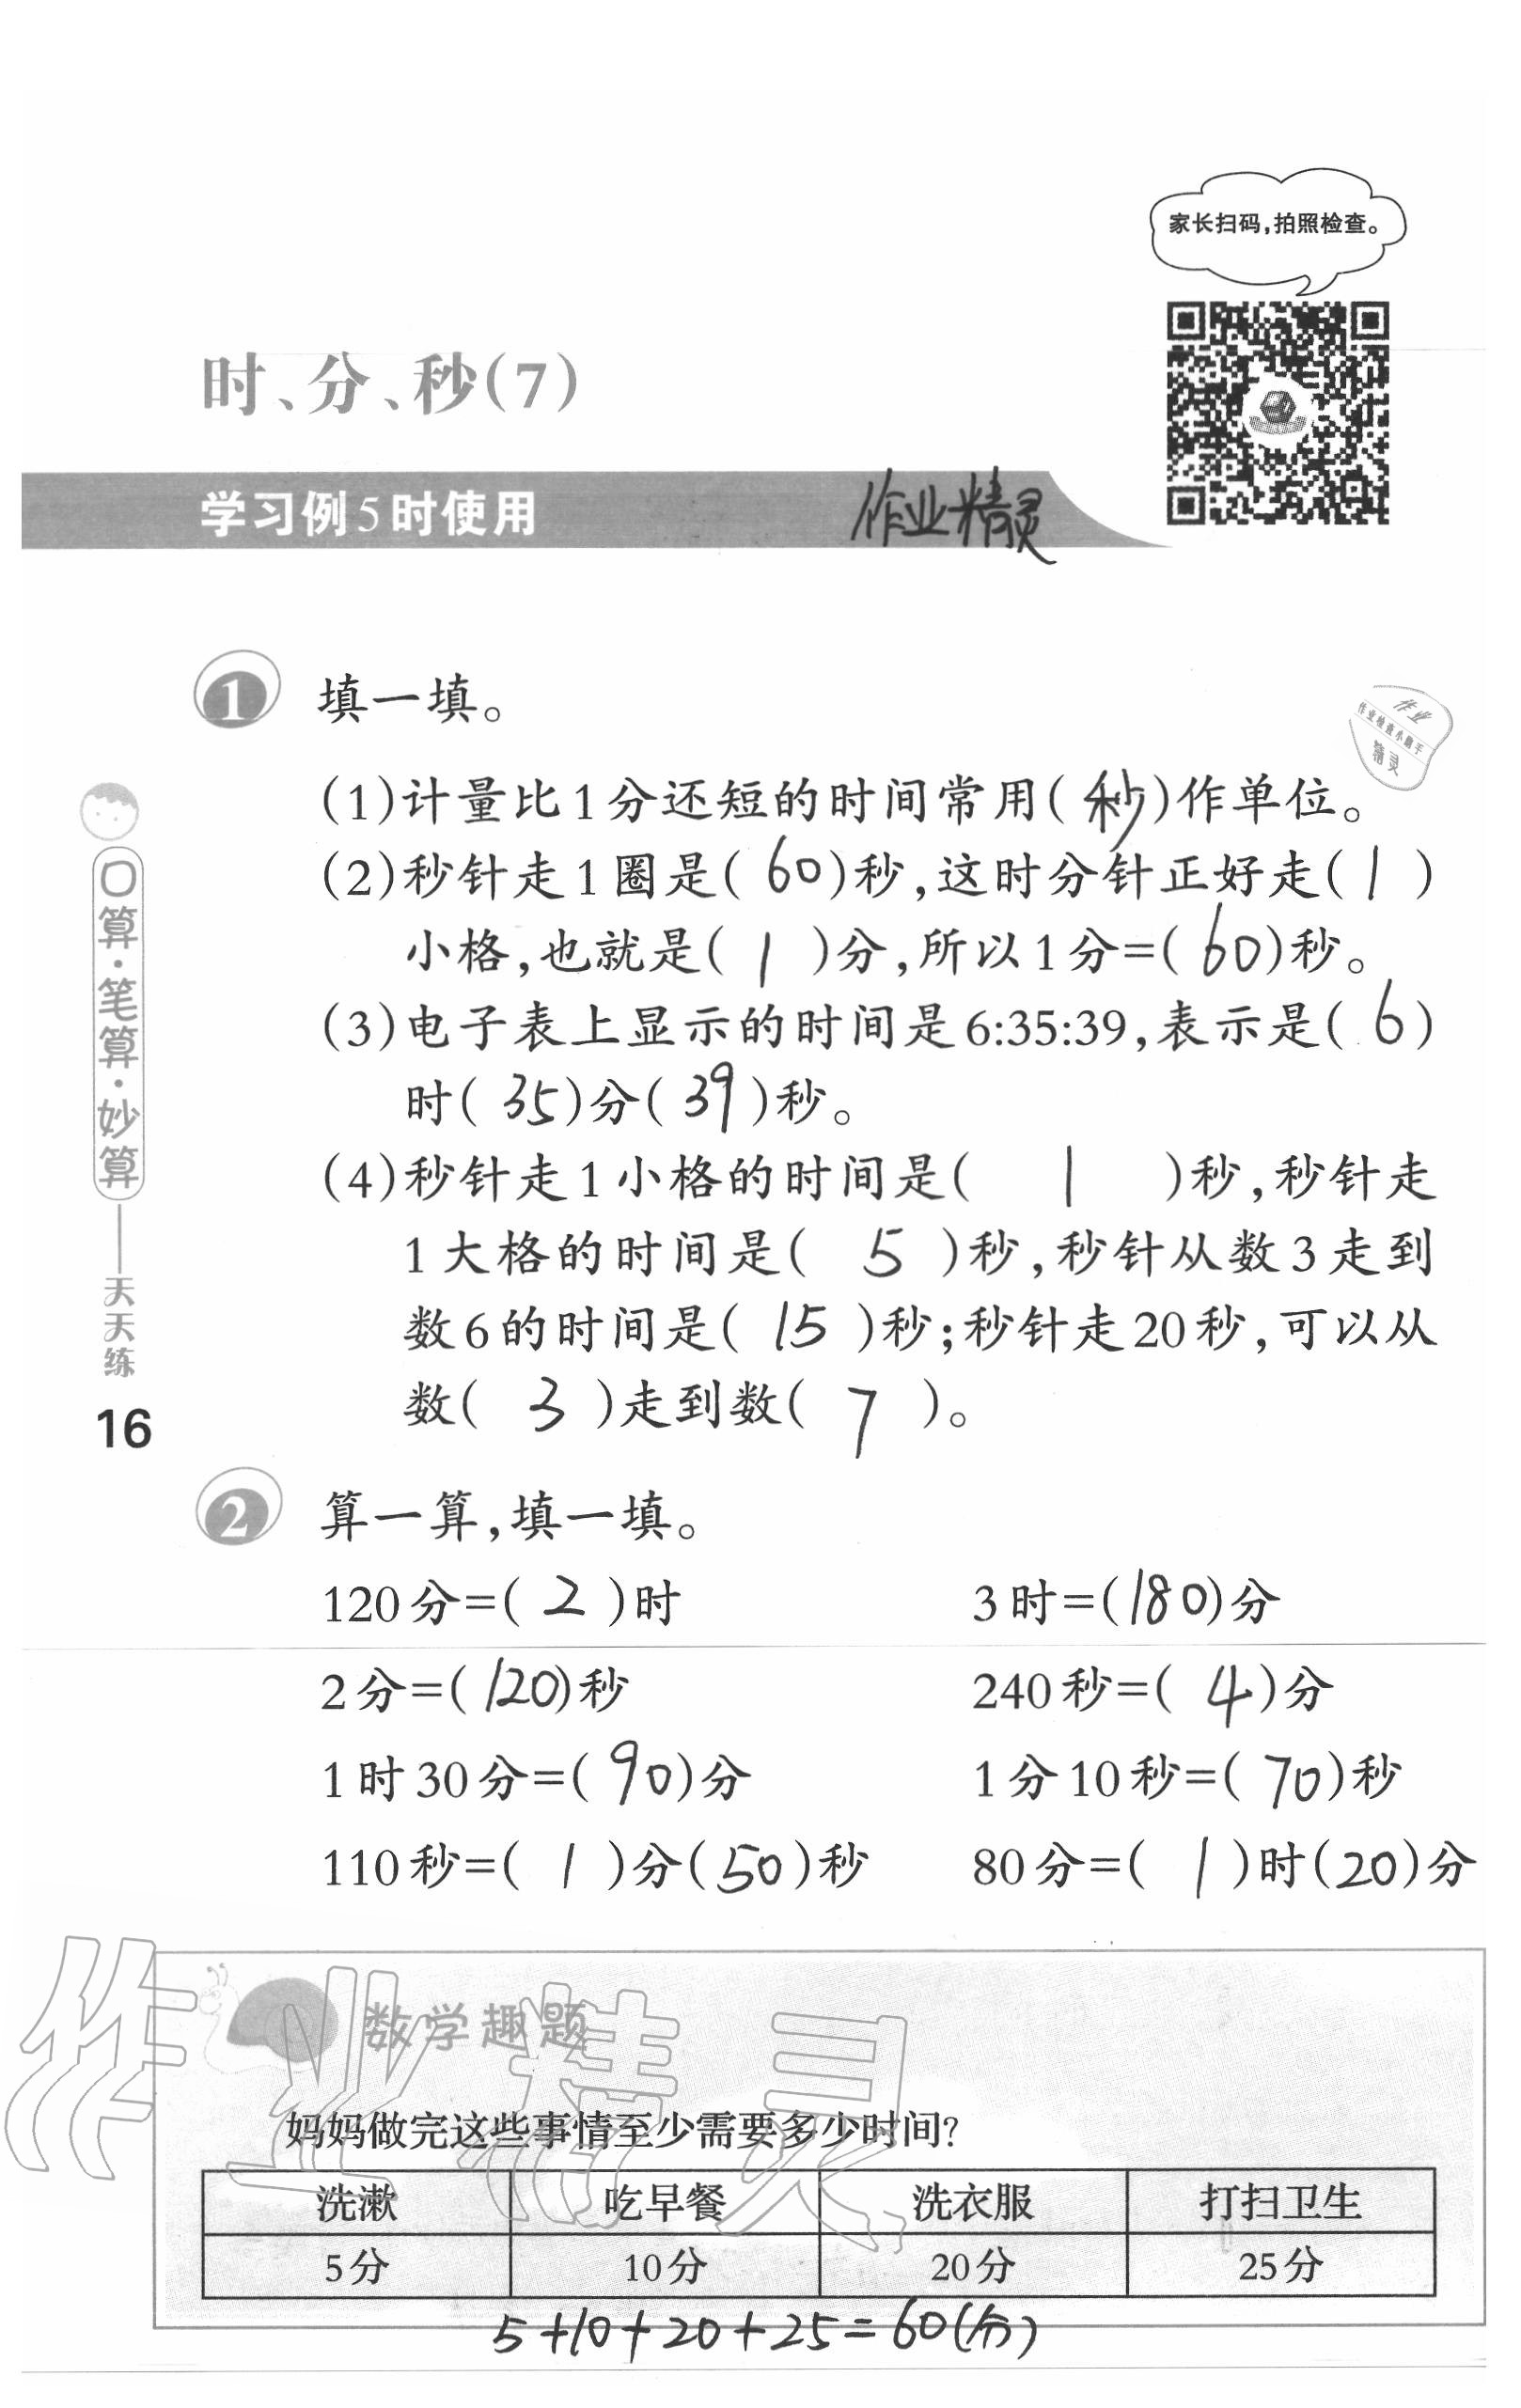 家长扫码,拍照检查。
时、分、秒(7)
学习例5时使用
作业精灵
1 填一填。
作业
作业检查小助手
精灵
(1)计量比1分还短的时间常用(秒)作单位。
(2)秒针走1圈是(60)秒,这时分针正好走(1)
小格,也就是(1)分,所以1分=(60)秒。
(3)电子表上显示的时间是6:35:39,表示是(6)
时(35)分(39)秒。
(4)秒针走1小格的时间是(1)秒,秒针走
1大格的时间是(5)秒,秒针从数3走到
数6的时间是(15)秒;秒针走20秒,可以从
数(3)走到数(7)。
口算·笔算·妙算——天天练
16
2 算一算,填一填。
120分=(2)时 3时=(180)分
2分=(120)秒 240秒=(4)分
1时30分=(90)分 1分10秒=(70)秒
110秒=(1)分(50)秒 80分=(1)时(20)分
作业精灵
数学趣题
妈妈做完这些事情至少需要多少时间?
洗漱 吃早餐 洗衣服 打扫卫生
5分 10分 20分 25分
5+10+20+25=60(分)